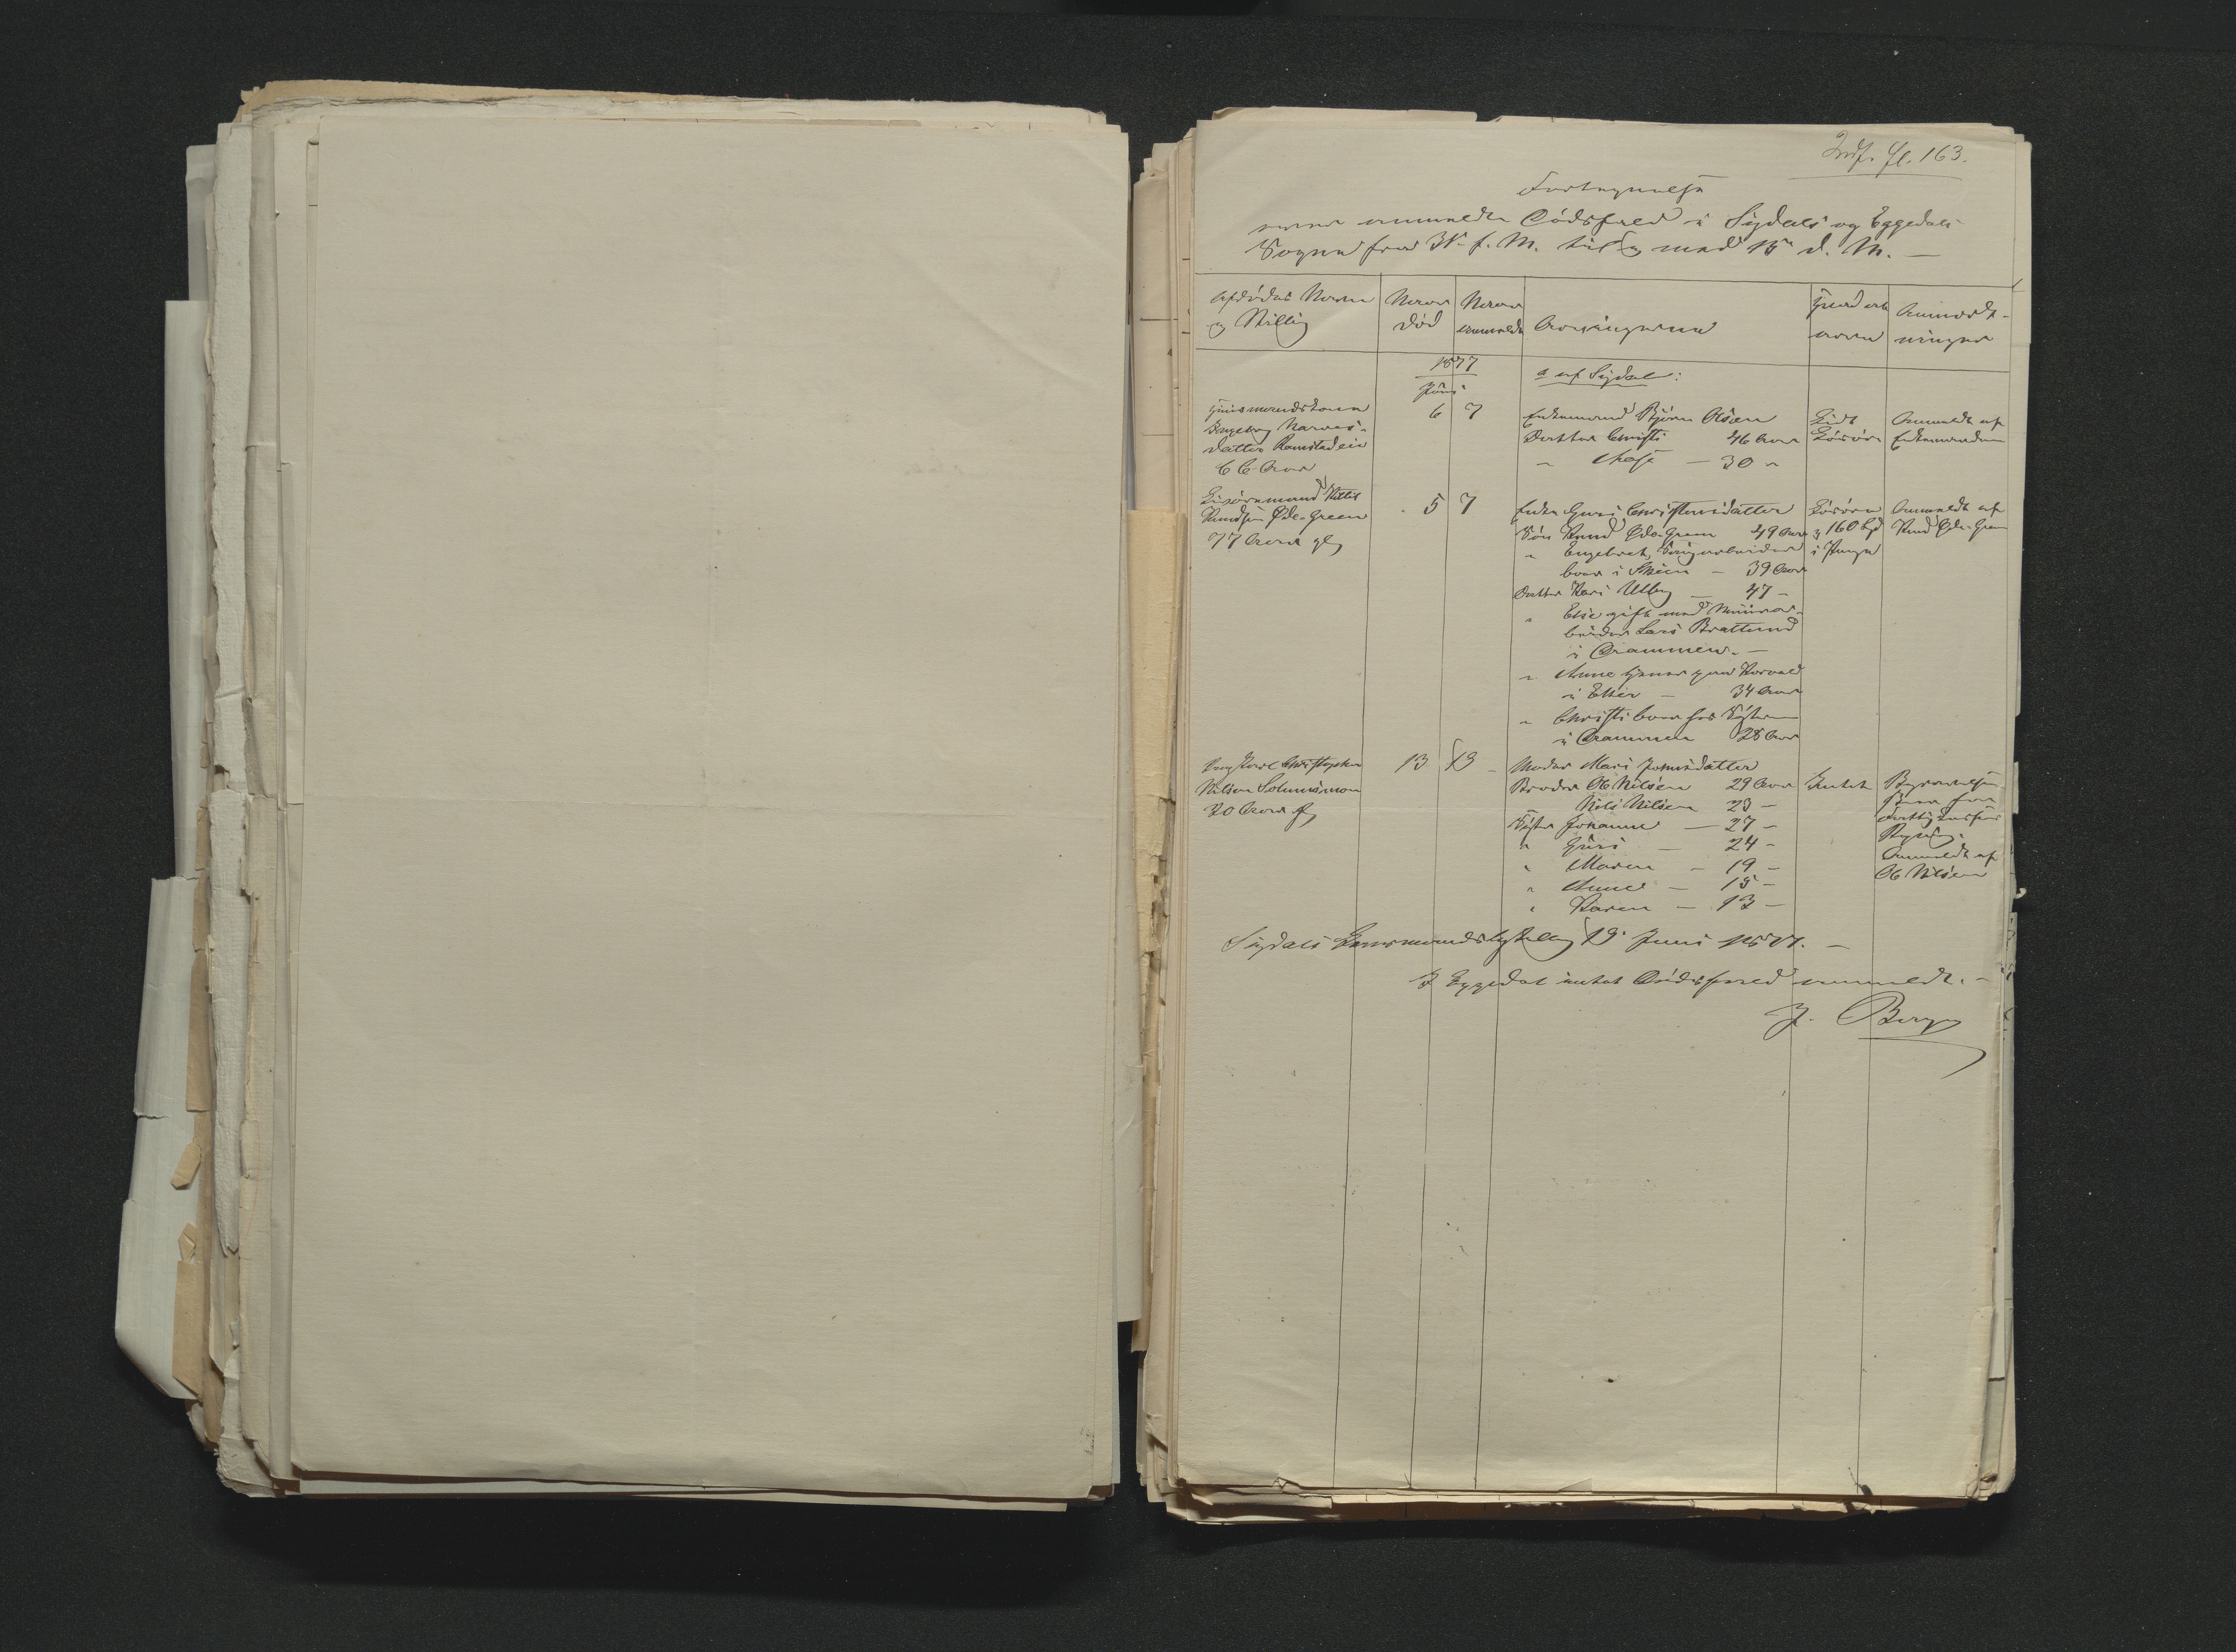 Indf. fl. 163.
Fortegnelse
over anmeldte Dødsfald i Sigdals og Eggedals
Sogne fra 31 f. M. til og med 15 d. M. —
Afdødes Navn
og Stilling
Naar
død
Naar
anmeldt
Arvingerne
Hvad arb
Anmærk-
ninger
1877
Juni
a af Sigdal:
Huusmandskone
Ingeborg Narves-
datter Ramstadeie
66 Aar
6 7
Enkemand Bjørn Olsen
Datter Christi 46 Aar
" — 30 "
Lidt
Løsøre
Anmeldt af
Enkemanden
Knudsen Øde-Green
77 Aar gl
5 7
Enke Guri Christensdatter
Søn Knud Øde-Green 49 Aar
" Engebret, Brugarbeider
boer i Skien — 39 Aar
Datter Kari Ulberg — 47 —
" Else gift med Muurar-
beider Lars Bratlund
i Drammen. —
" Anne
i Eker — 34 Aar
" Christi boer hos Søsteren
i Drammen 28 Aar
Løsøre
og 160 Spd
i Penge
Anmeldt af
Knud Øde-Green
Christopher
Nilsen
20 Aar gl
13 13
Moder Mari Johnsdatter
Broder Ole Nilsen 29 Aar
Nils Nilsen 23 —
Søster Johanne — 27 —
" Guri — 24 —
" Maren — 19 —
" Anne — 15 —
" Karen — 13 —
Intet
Anmeldt af
Ole Nilsen
Sigdals Lensmandsbestilling 19 Juni 1877. —
I Eggedal intet Dødsfald anmeldt. —
J. Berg